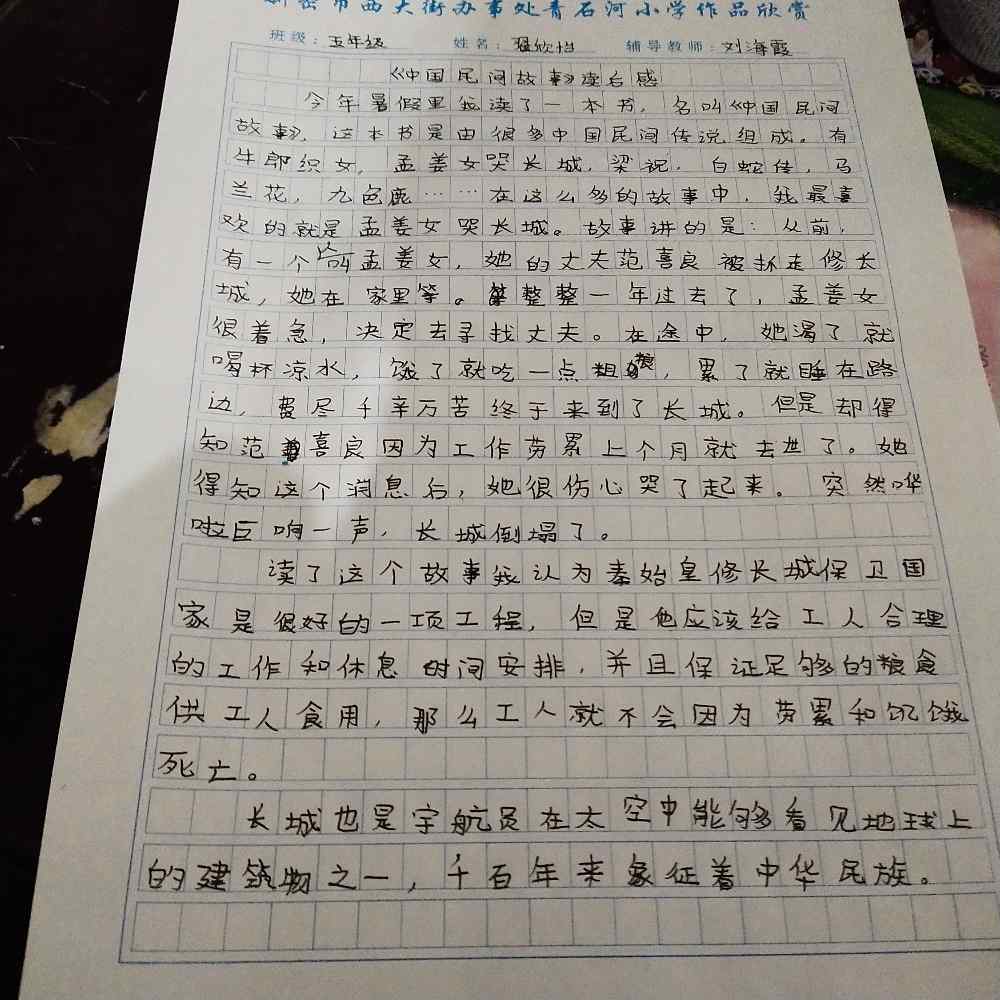 新密市西大街办事处青石河小学作品欣赏
班级：五年级 姓名：欣怡 辅导教师：刘海霞
《中国民间故事》读后感
今年暑假里我读了一本书，名叫《中国民间
故事》，这本书是由很多中国民间传说组成。有
牛郎织女，孟姜女哭长城，梁祝，白蛇传，马
兰花，九色鹿……在这么多的故事中，我最喜
欢的就是孟姜女哭长城。故事讲的是：从前，
有一个人叫孟姜女，她的丈夫范喜良被抓走修长
城，她在家里等。整整一年过去了，孟姜女
很着急，决定去寻找丈夫。在途中，她渴了就
喝杯凉水，饿了就吃一点粗粮，累了就睡在路
边，费尽千辛万苦终于来到了长城。但是却得
知范喜良因为工作劳累上个月就去世了。她
得知这个消息后，她很伤心哭了起来。突然哗
啦巨响一声，长城倒塌了。
读了这个故事我认为秦始皇修长城保卫国
家是很好的一项工程，但是他应该给工人合理
的工作和休息时间安排，并且保证足够的粮食
供工人食用，那么工人就不会因为劳累和饥饿
死亡。
长城也是宇航员在太空中能够看见地球上
的建筑物之一，千百年来象征着中华民族。